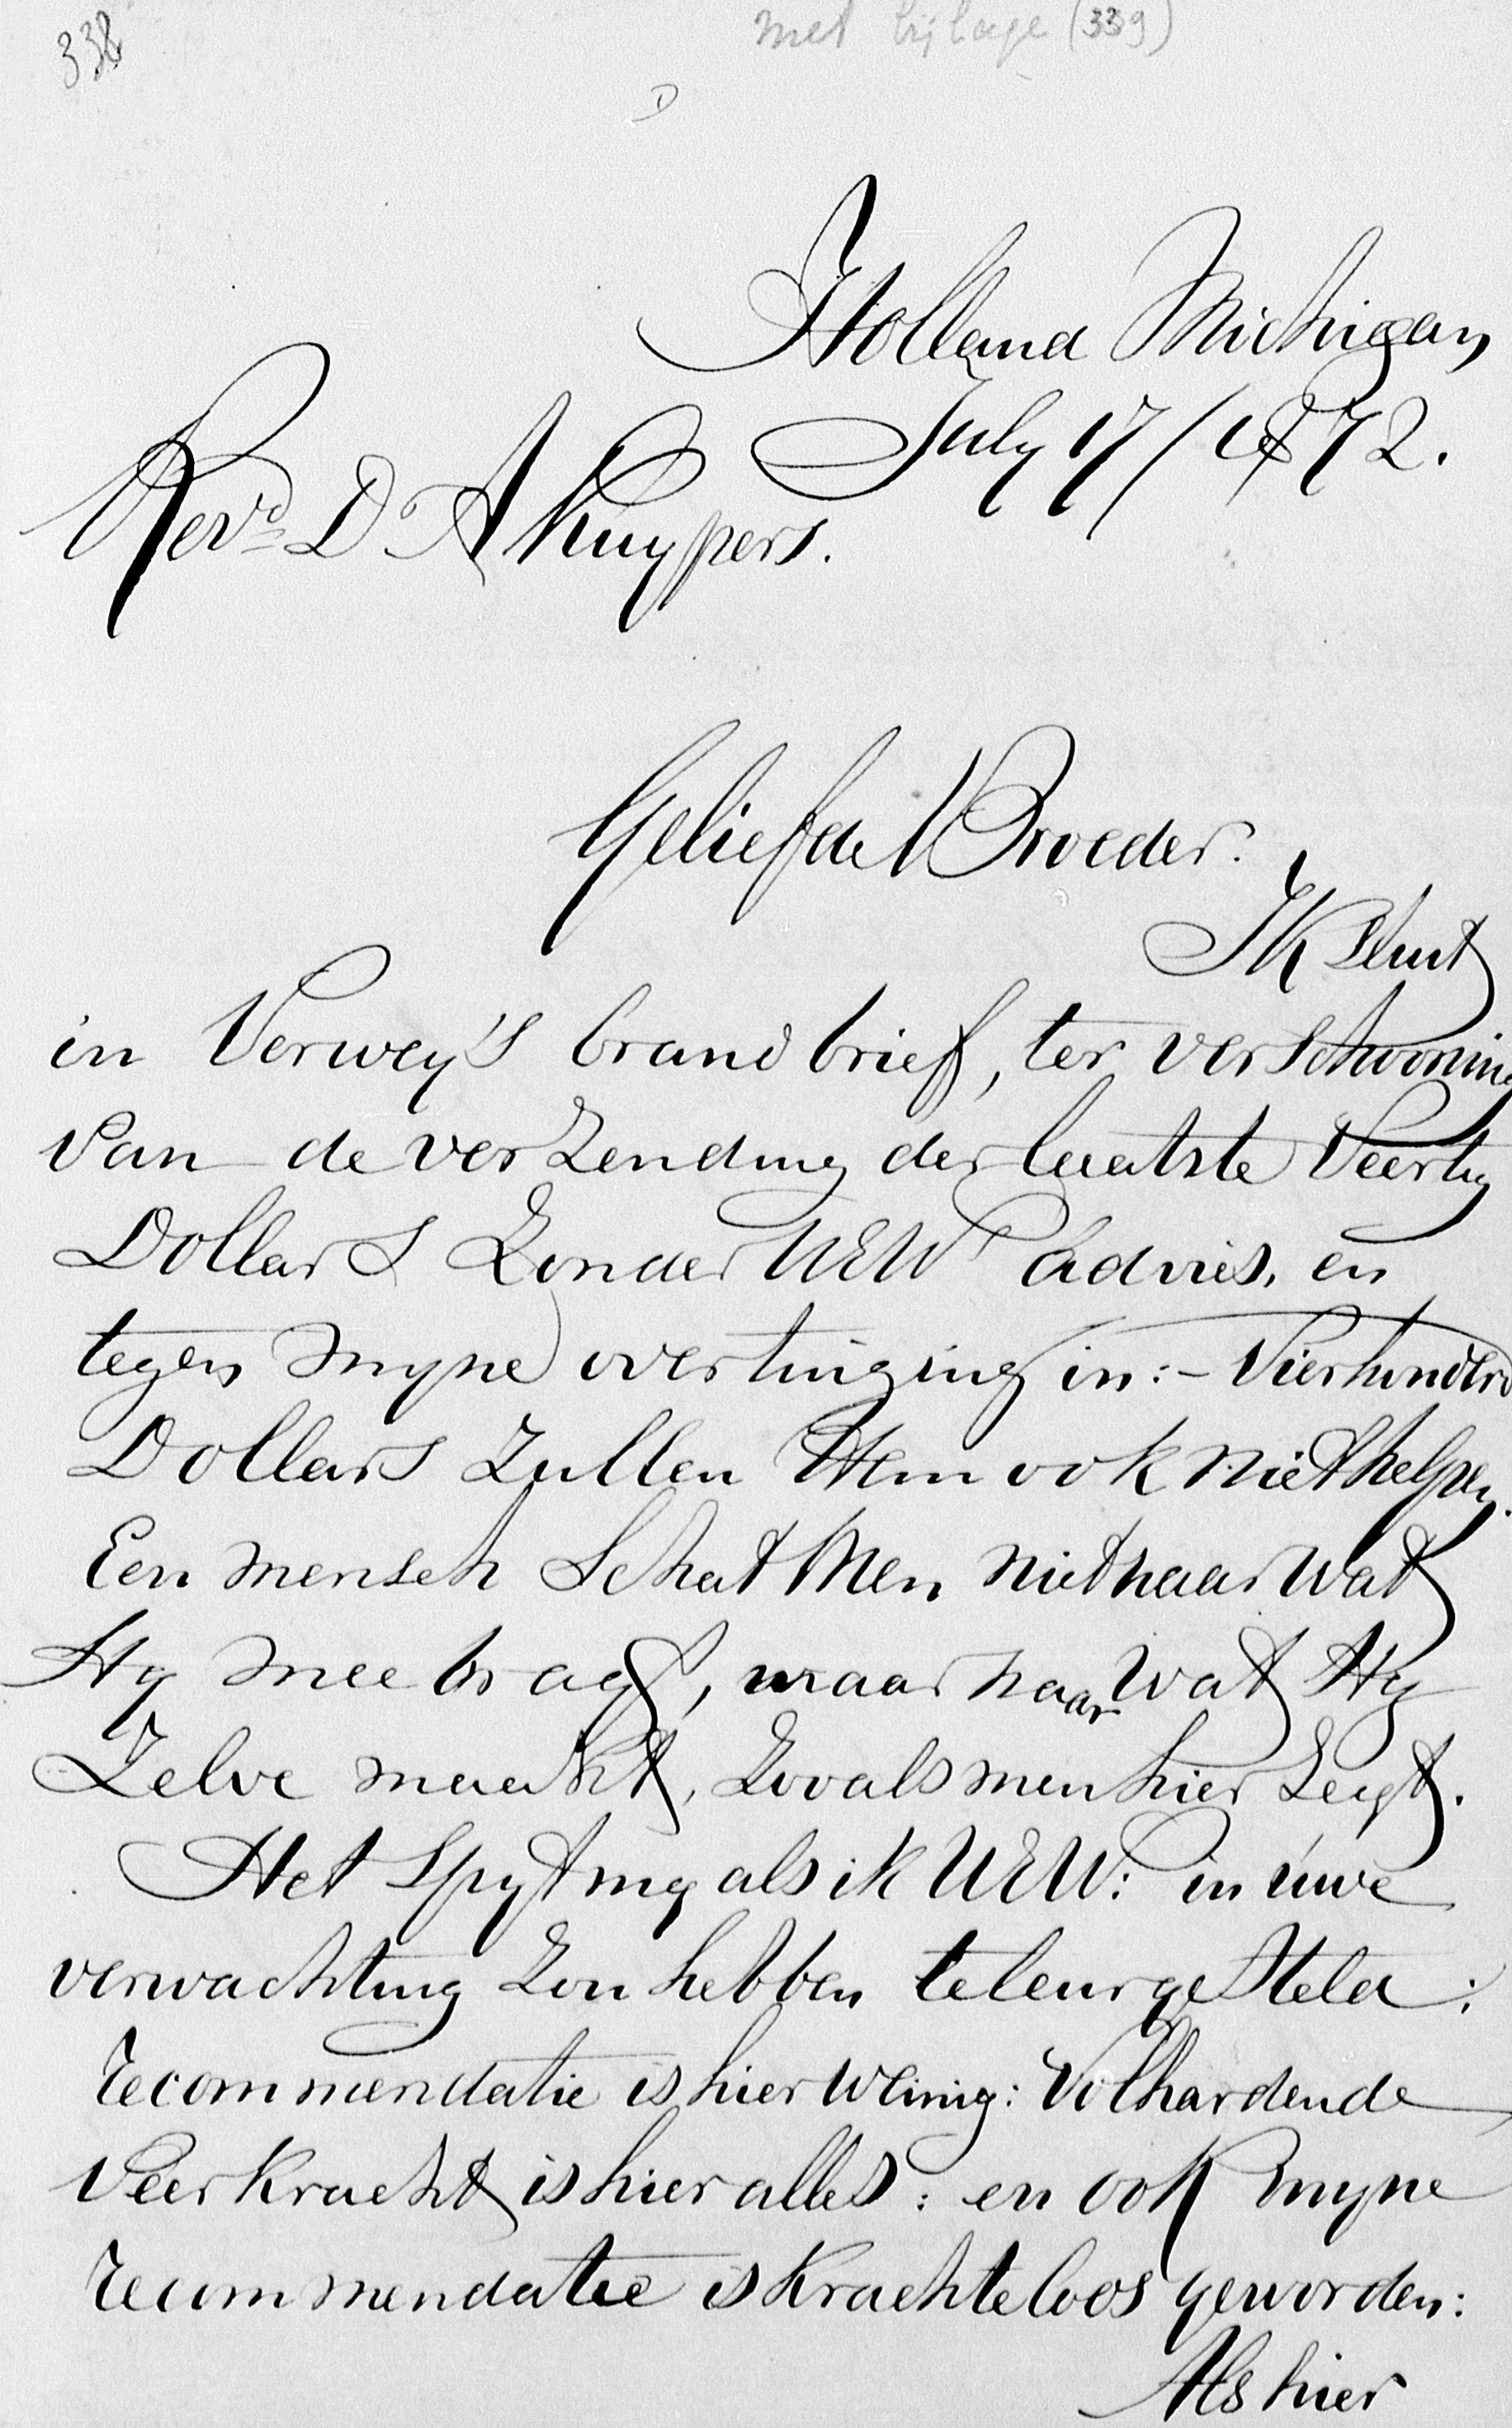 338
met bijlage (339)
D
Holland Michigan
July 17/1872.
Revd D A Kuypers.
Geliefde Broeder.
Ik sluit
in Verwey's brand brief, ter verschooning
van de verzending der laatste veertig
Dollars zonder UEW advies, en
tegen myne overtuiging in: - Vierhonderd
Dollars zullen Hem ook niet helpen.
Een mensch schat Men niet naar wat
Hy mee bragt, maar naar wat Hy
Zelve maakt, Zooals men hier zegt.
Het spyt my als ik UEW: in uwe
verwachting zou hebben teleurgesteld:
recommendatie is hier weinig: Volhardende
veerkracht is hier alles: en ook myne
recommendatie is krachteloos geworden:
Als hier